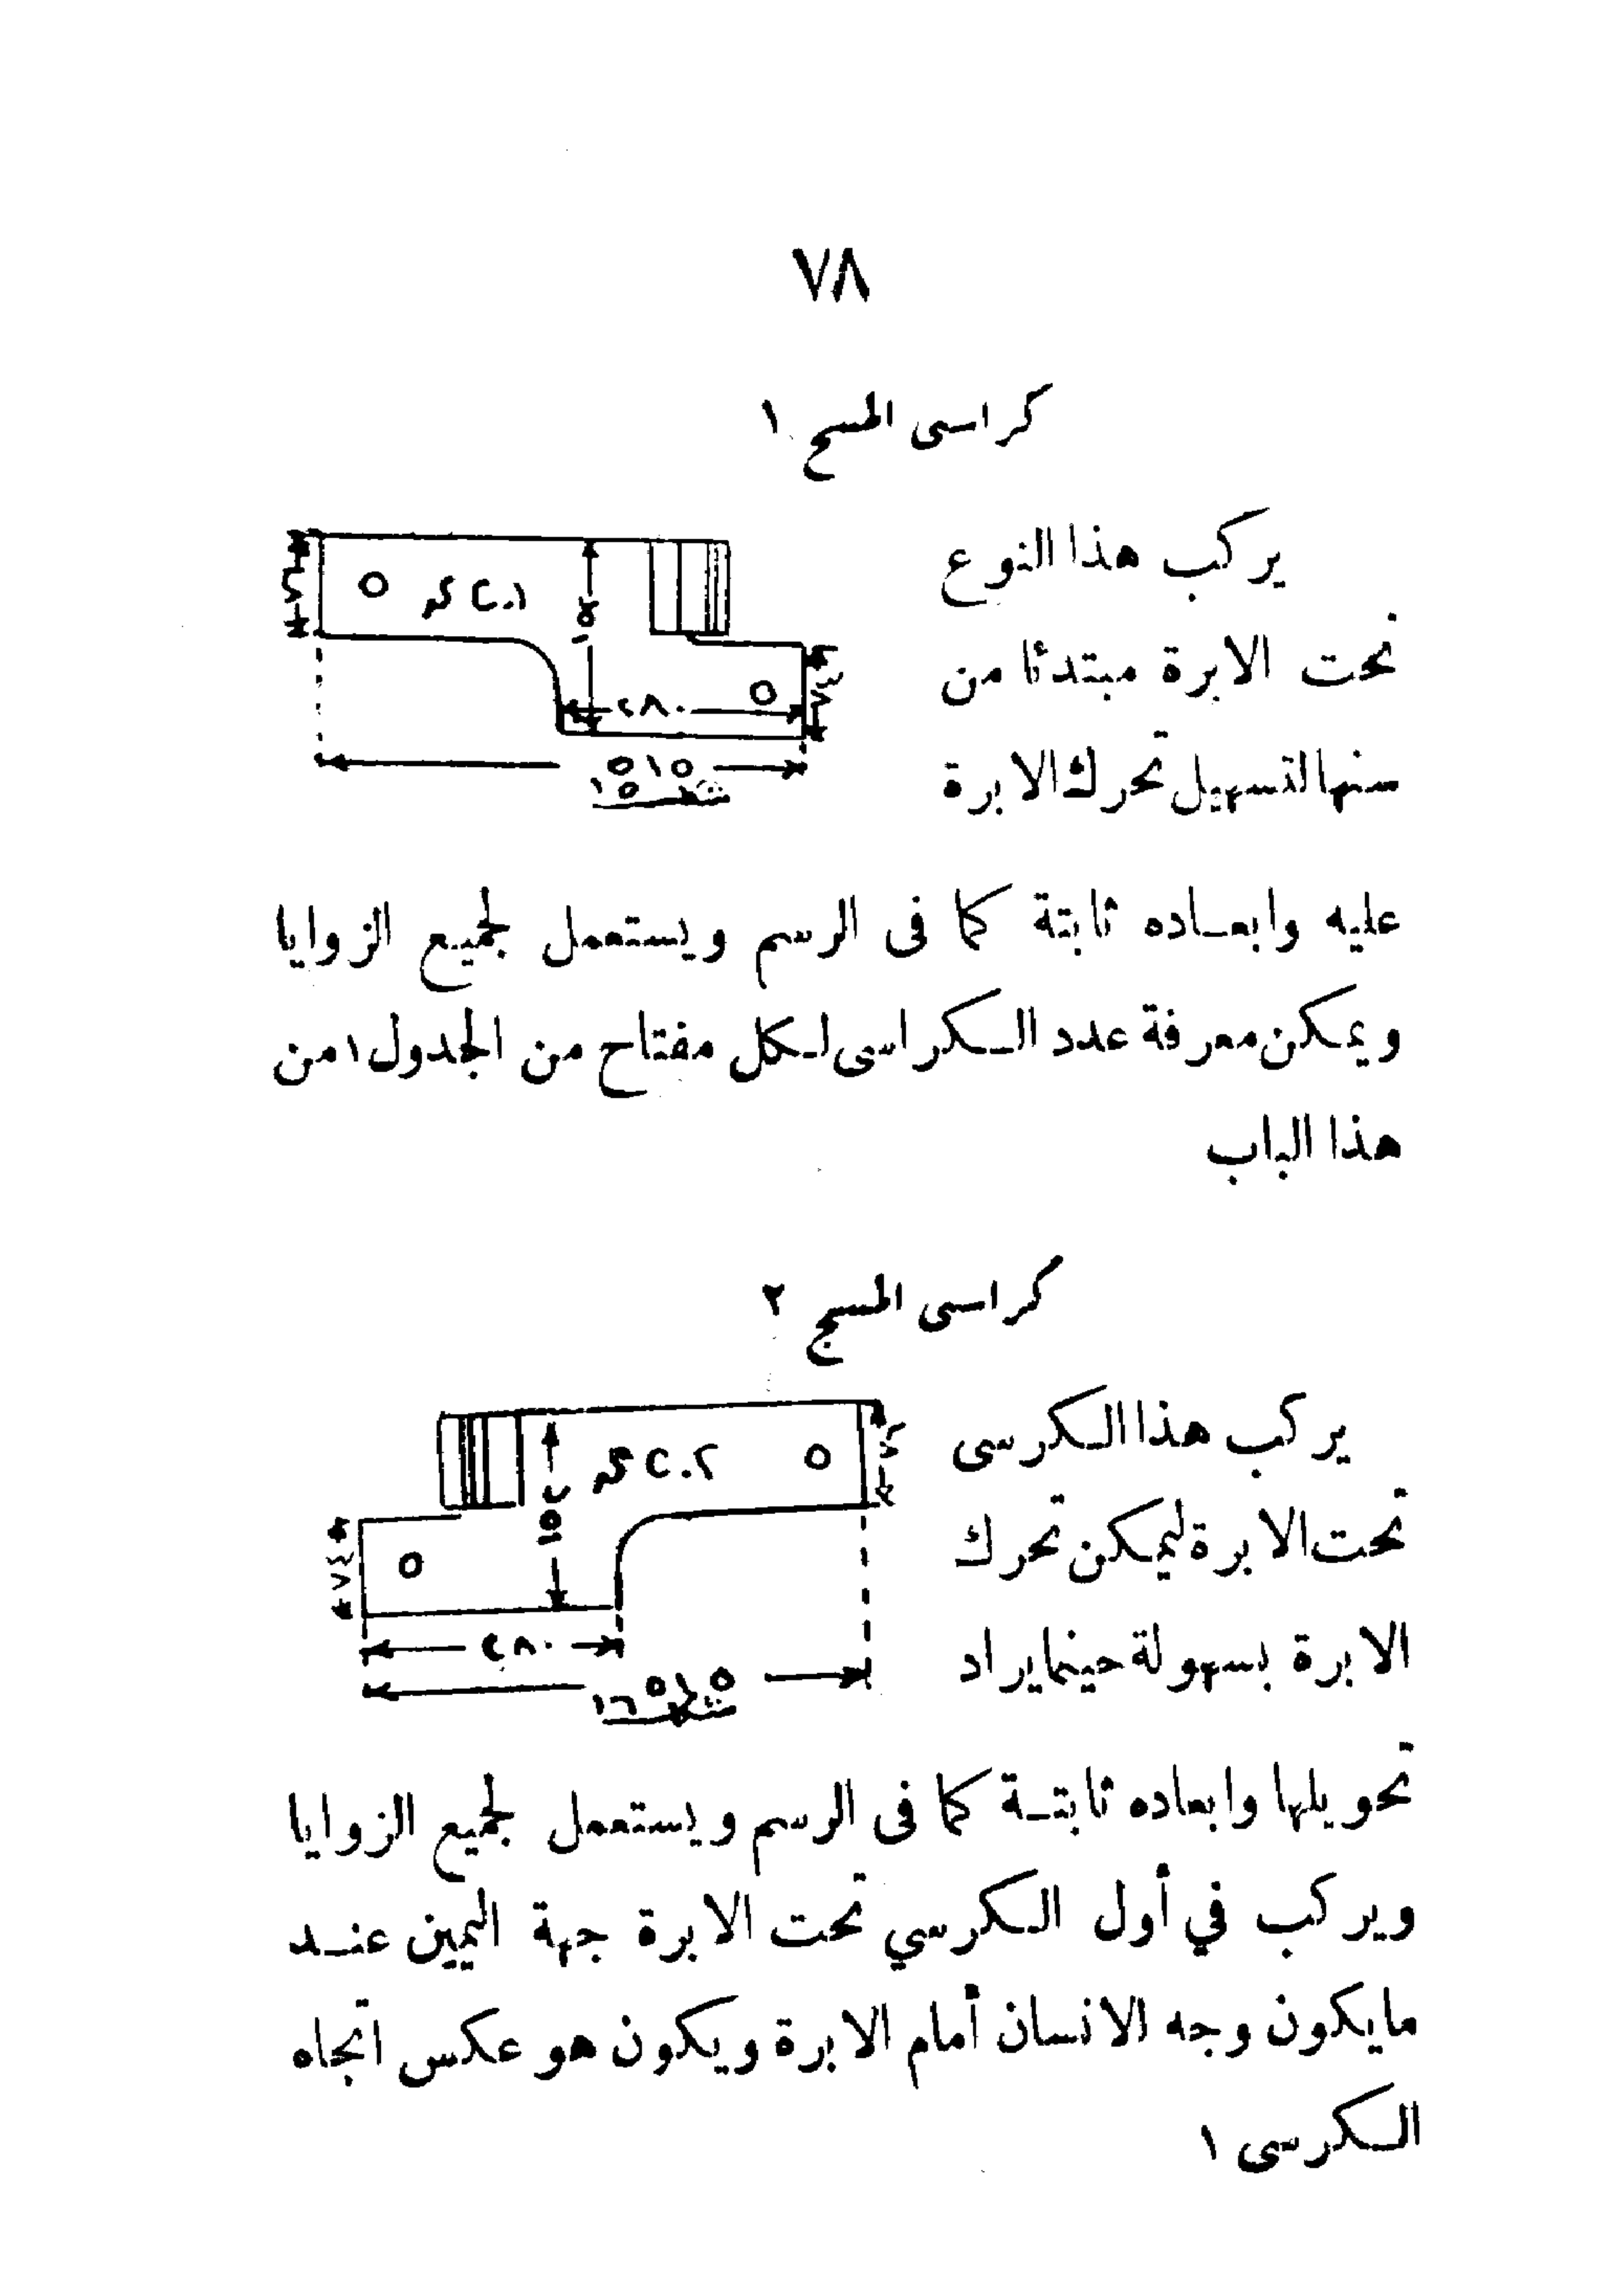 ٧٨
كراسى المسح ١
يركب هذا النوع
تحت الابرة مبتدئا من
سنها لتسهيل تحرك الابرة
SC.١
٢٨٠
٥١٥
شكل ١٥
عليه وابعاده ثابتة كما فى الرسم ويستعمل لجميع الزوايا
ويمكن معرفة عدد الكراسى لكل مفتاح من الجدول ١ من
هذا الباب
كراسى المسح ٢
يركب هذا الكرسى
تحت الابرة ليمكن تحرك
الابرة بسهولة حينما يراد
SC.٢
٢٨٠
٥١٥
شكل ١٦
تحويلها وابعاده ثابتة كما فى الرسم ويستعمل لجميع الزوايا
ويركب في أول الكرسي تحت الابرة جهة اليمين عند
ما يكون وجه الانسان أمام الابرة ويكون هو عكس اتجاه
الكرسى ١